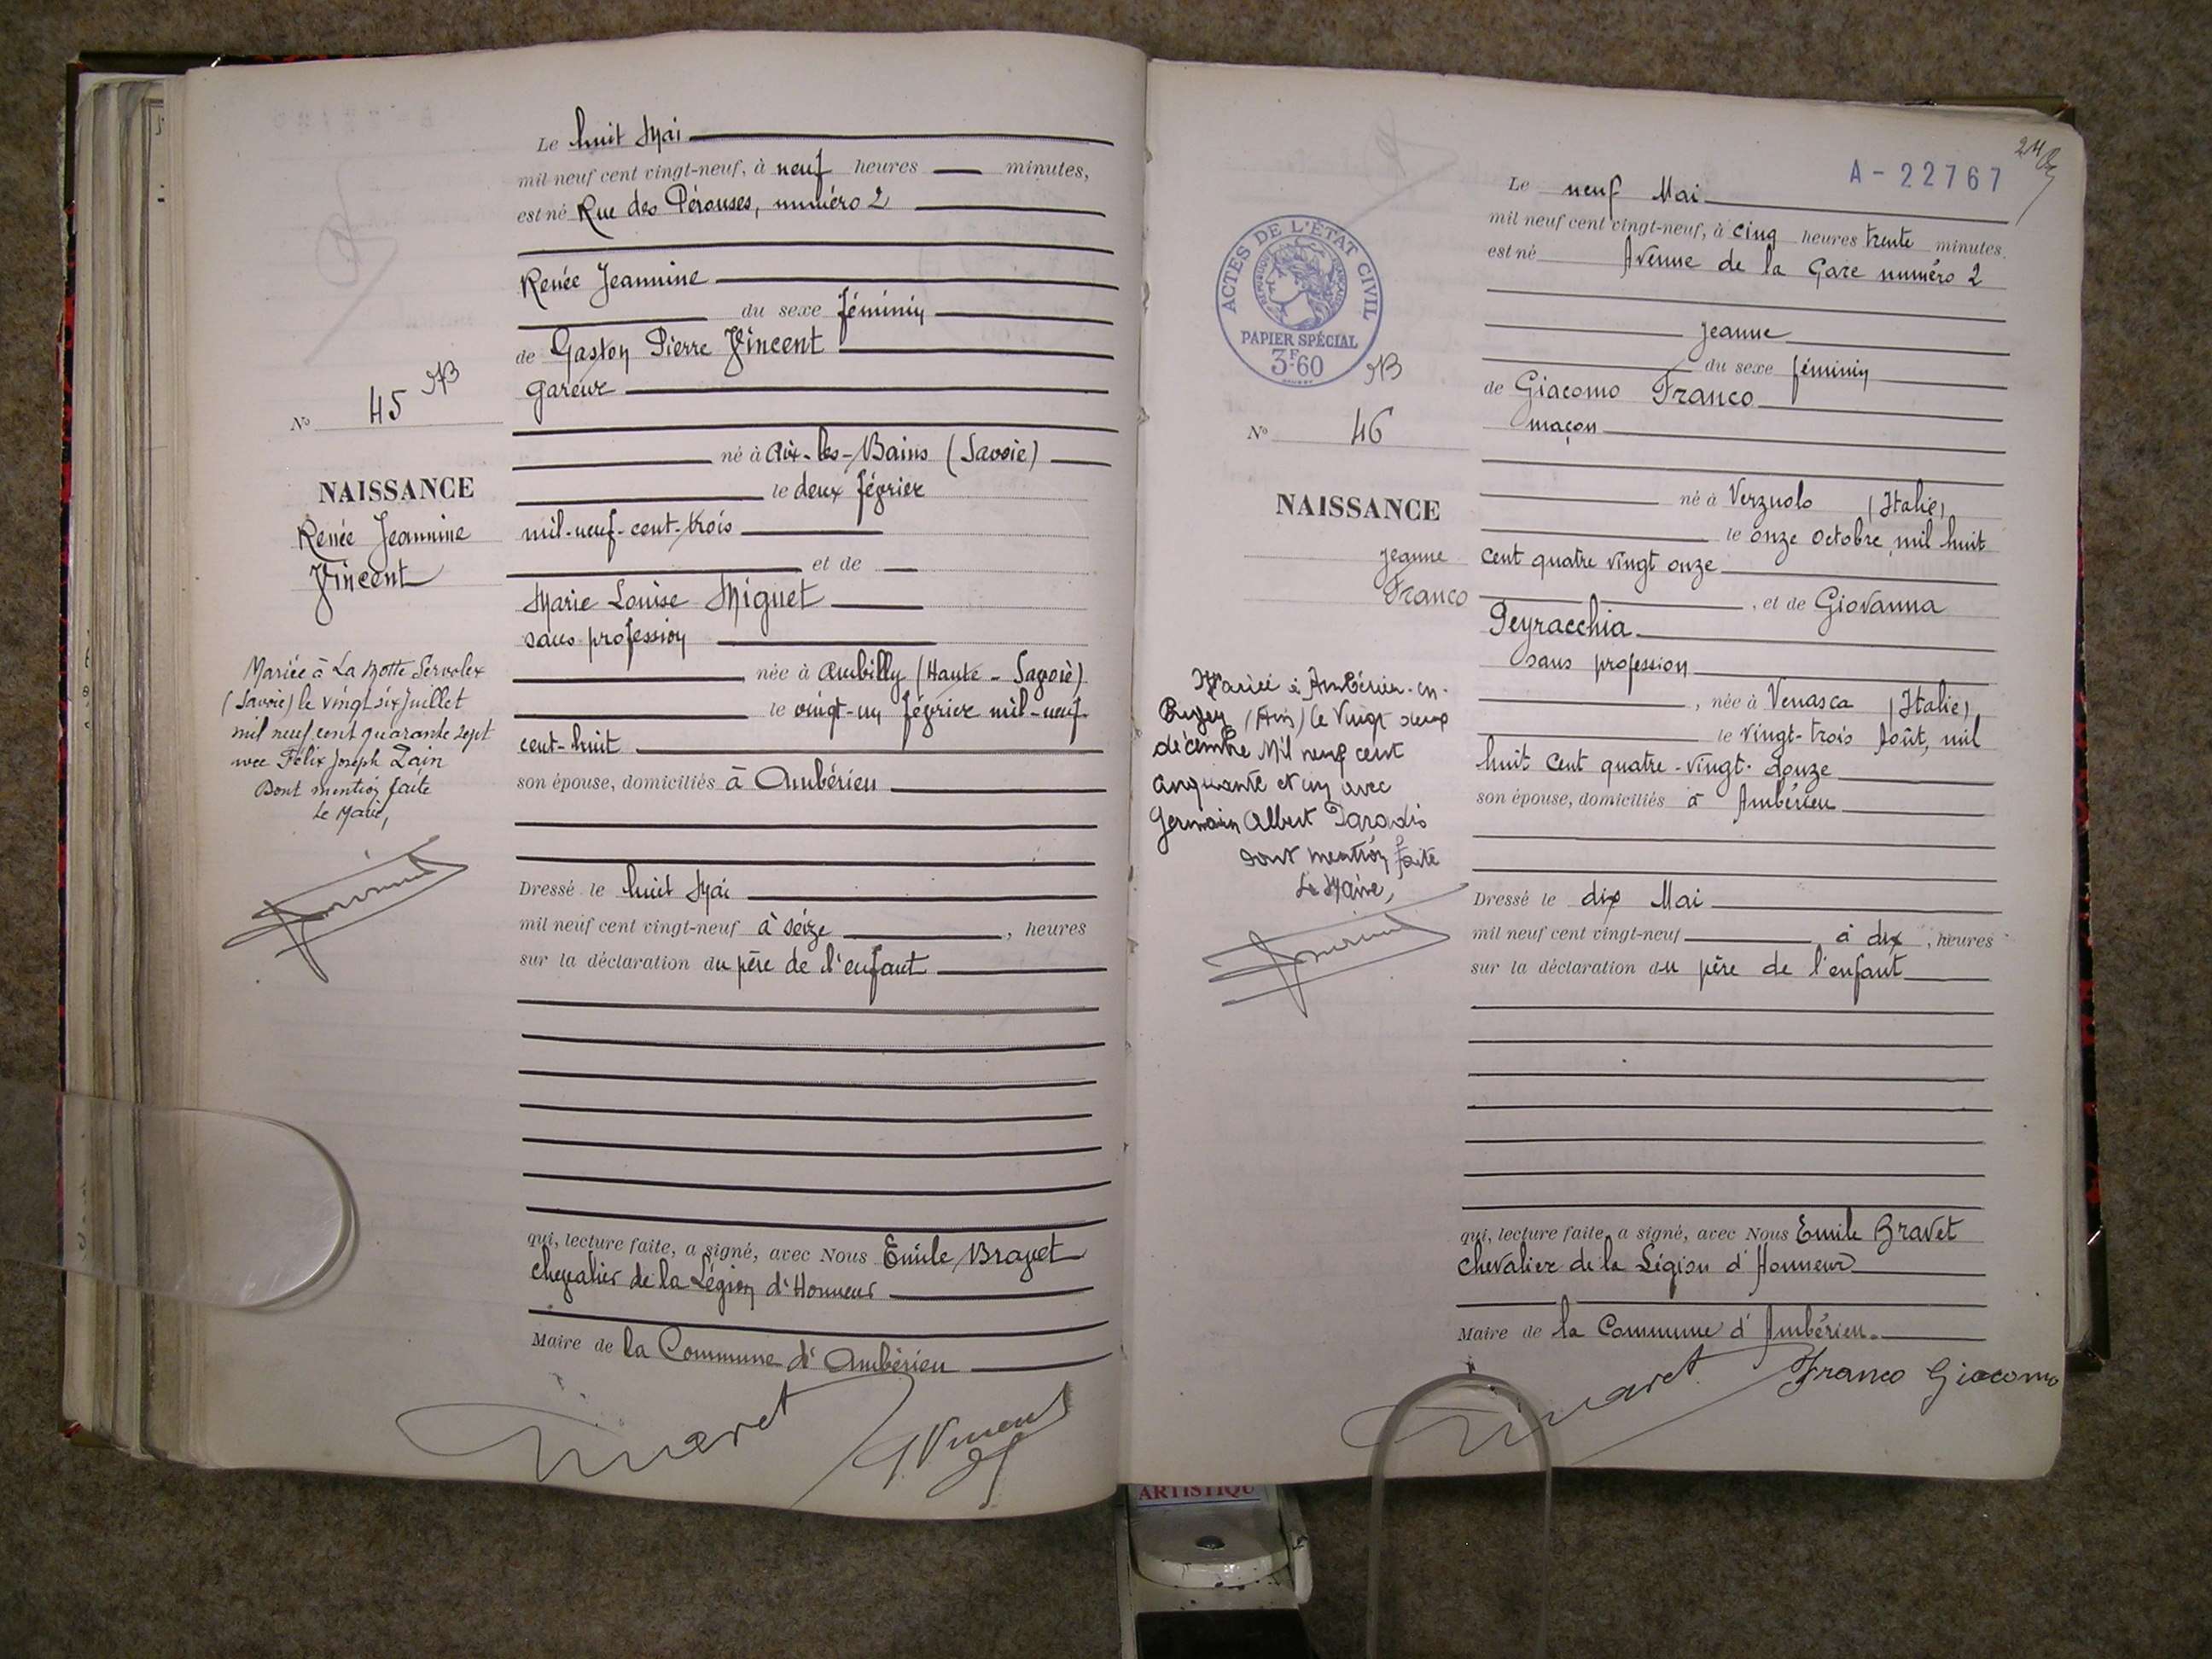 Le huit Mai
mil neuf cent vingt-neuf, à neuf heures minutes,
est né Rue des Pérouses, numéro 2
Renée Jeannine
du sexe féminin
de Gaston Pierre Vincent
gareur
né à Aix-les-Bains (Savoie)
le deux février
mil-neuf-cent-trois
et de
Marie Louise Miguet
sans profession
née à Ambilly (Haute-Savoie)
le vingt-un février mil-neuf-
cent-huit
son épouse, domiciliés à Ambérieu
Dressé le huit Mai
mil neuf cent vingt-neuf à seize, heures
sur la déclaration du père de l'enfant
qui, lecture faite, a signé, avec Nous Emile Bravet
chevalier de la Légion d'Honneur
Maire de la Commune d'Ambérieu
Nº 45
NAISSANCE
Renée Jeannine
Vincent
Mariée à La Motte Servolex
(Savoie) le vingt six Juillet
mil neuf cent quarante sept
avec Félix Joseph Zain
Dont mention faite
Le Maire,
G. Vincent
A-22767
Le neuf Mai
mil neuf cent vingt-neuf, à cinq heures trente minutes.
est né Avenue de la Gare numéro 2
Jeanne
du sexe féminin
de Giacomo Franco
maçon
né à Verzuolo (Italie)
le onze octobre, mil huit
cent quatre vingt onze
, et de Giovanna
Peyracchia
sans profession
, née à Venasca (Italie)
le vingt-trois Août, mil
huit cent quatre-vingt-douze
son épouse, domiciliés à Ambérieu
Dressé le dix Mai
mil neuf cent vingt-neuf à dix, heures
sur la déclaration du père de l'enfant
qui, lecture faite, a signé, avec Nous Emile Bravet
chevalier de la Légion d'Honneur
Maire de la Commune d'Ambérieu.
Franco Giacomo
ACTES DE L'ÉTAT CIVIL
RÉPUBLIQUE FRANÇAISE
PAPIER SPÉCIAL
3F60
Nº 46
NAISSANCE
Jeanne
Franco
Mariée à Ambérieu-en-
Bugey (Ain) le vingt deux
décembre Mil neuf cent
cinquante et un avec
Germain Albert Paradis
dont mention faite
Le Maire,
ARTISTIQU